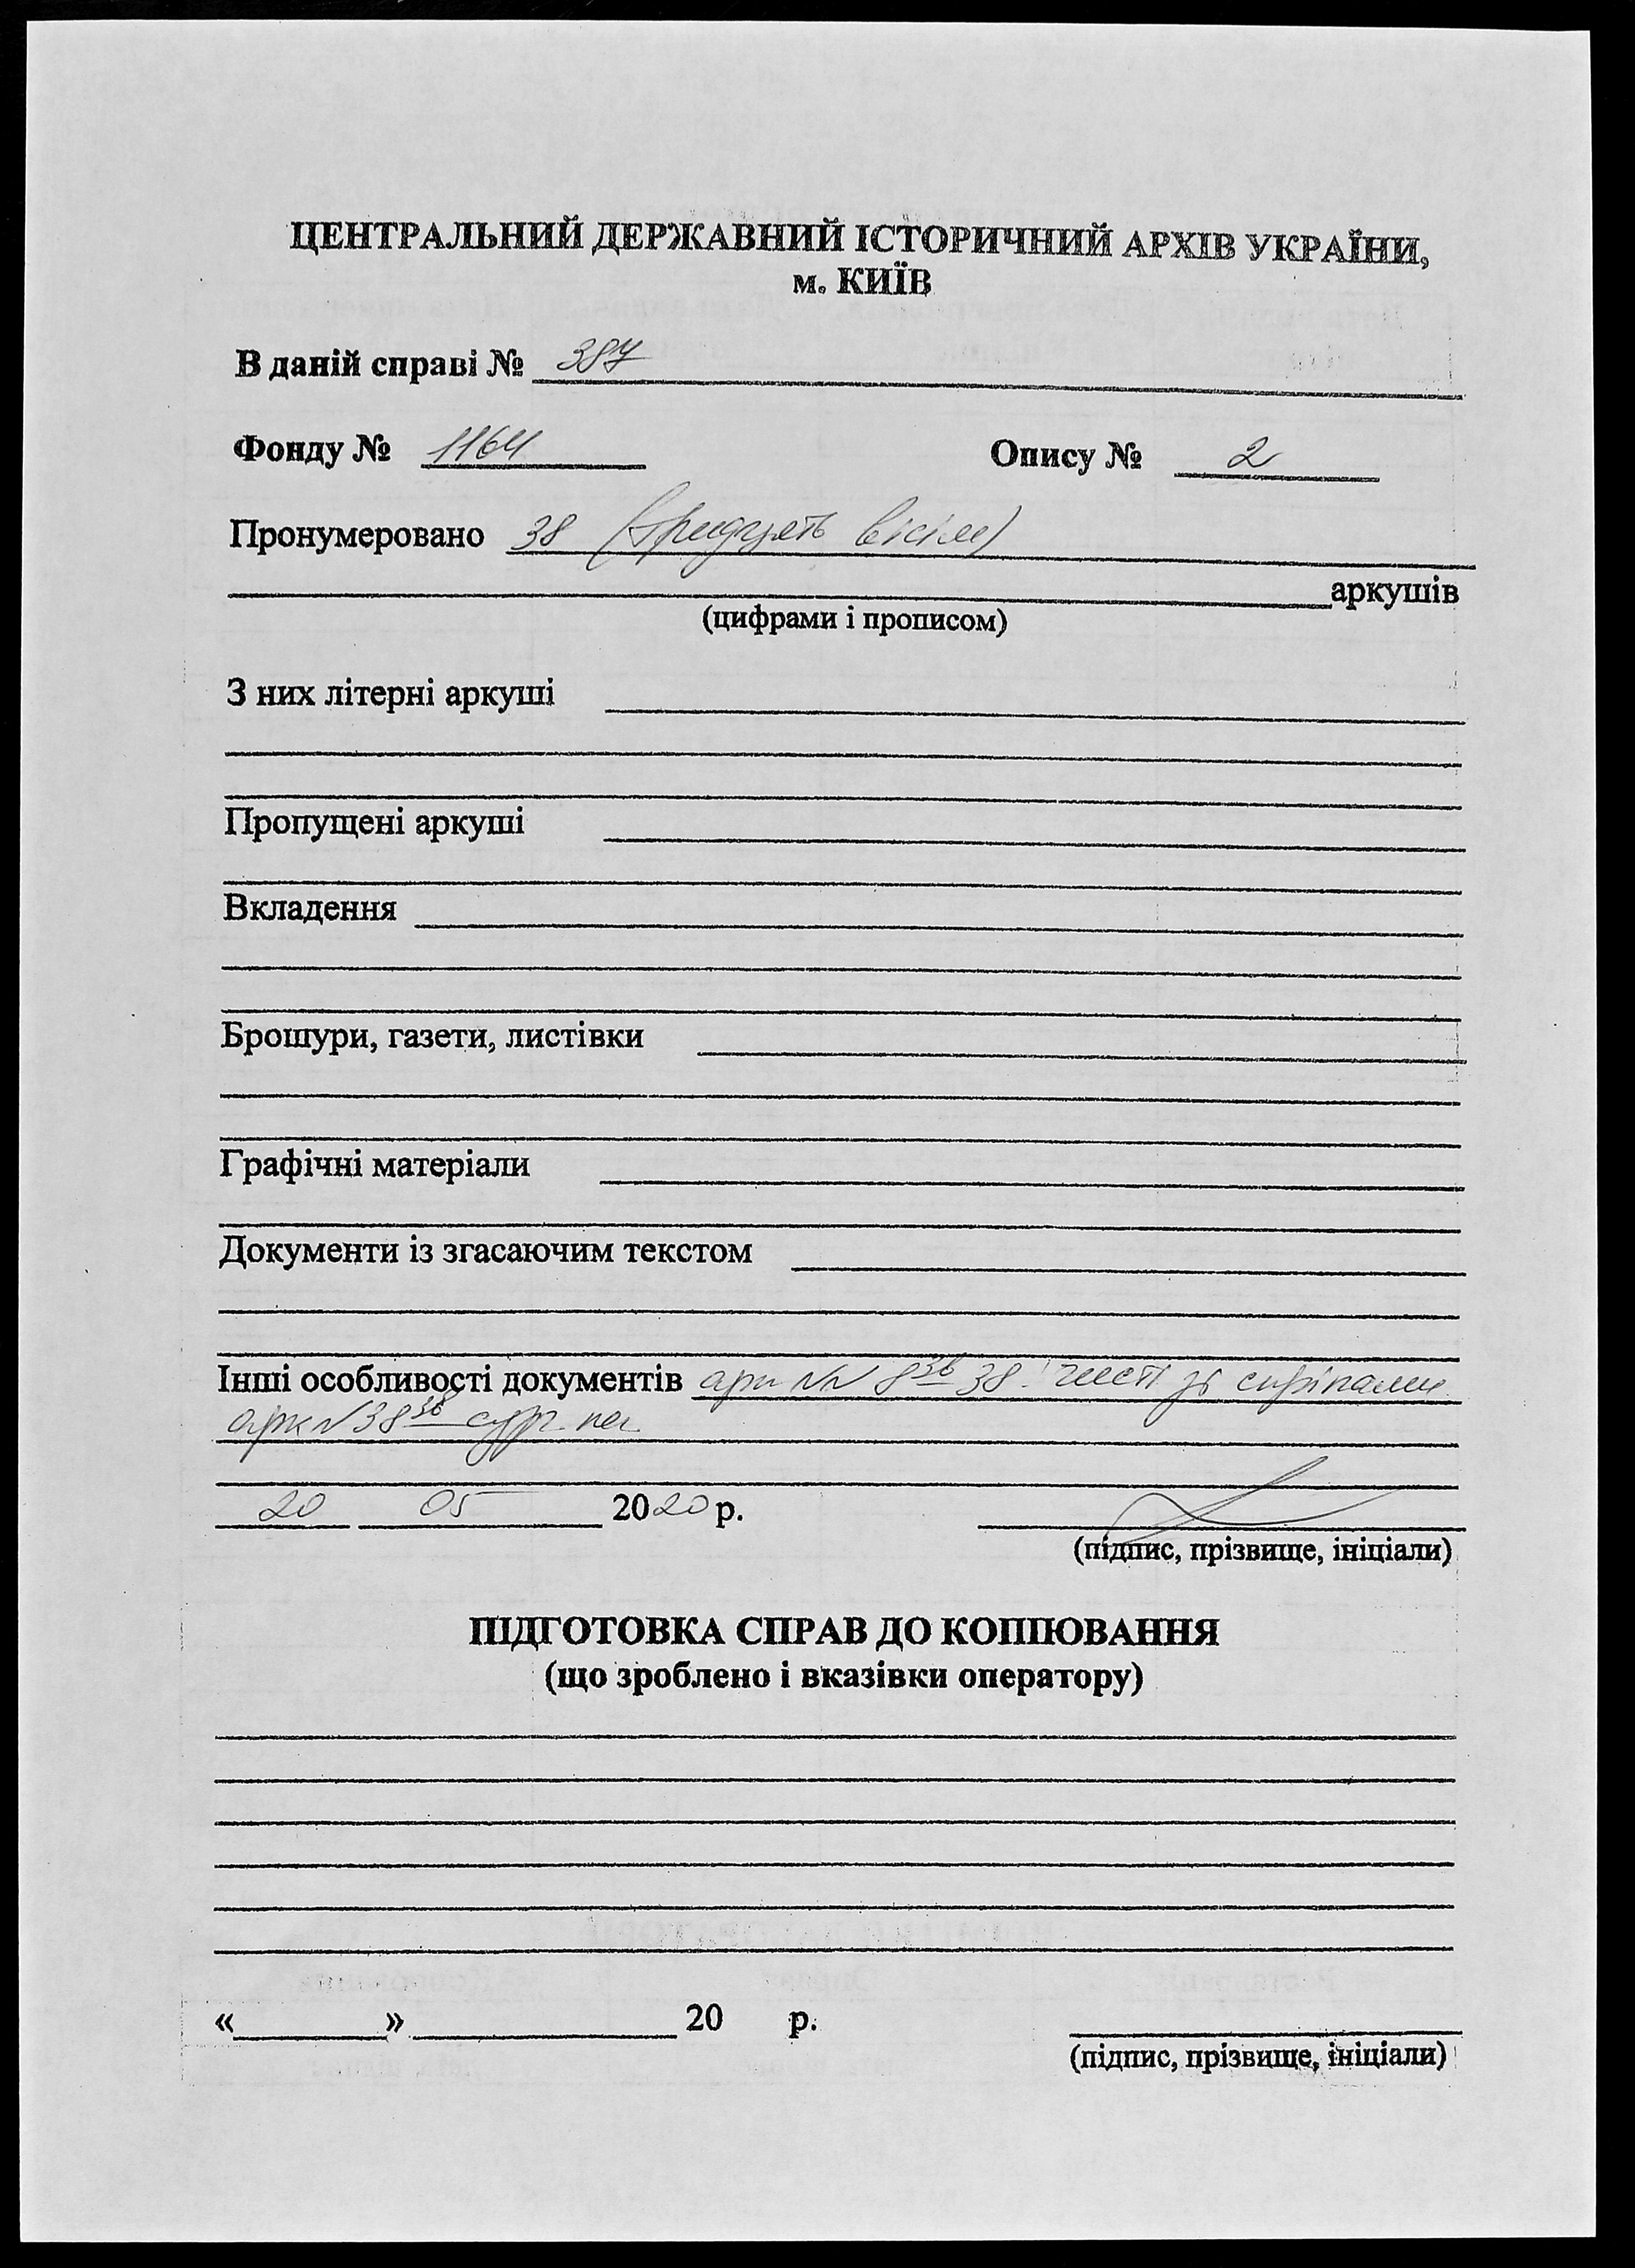 ЦЕНТРАЛЬНИЙ ДЕРЖАВНИЙ ІСТОРИЧНИЙ АРХІВ УКРАЇНИ,
м. КИЇВ
В даній справі № 387
Фонду № 1164 Опису № 2
Пронумеровано 38 (тридцять вісім)
аркушів
(цифрами і прописом)
З них літерні аркуші
Пропущені аркуші
Вкладення
Брошури, газети, листівки
Графічні матеріали
Документи із згасаючим текстом
Інші особливості документів арк №№ 8зв 38
арк № 38зв
20 05 2020 р.
(підпис, прізвище, ініціали)
ПІДГОТОВКА СПРАВ ДО КОПІЮВАННЯ
(що зроблено і вказівки оператору)
« » 20 р.
(підпис, прізвище, ініціали)